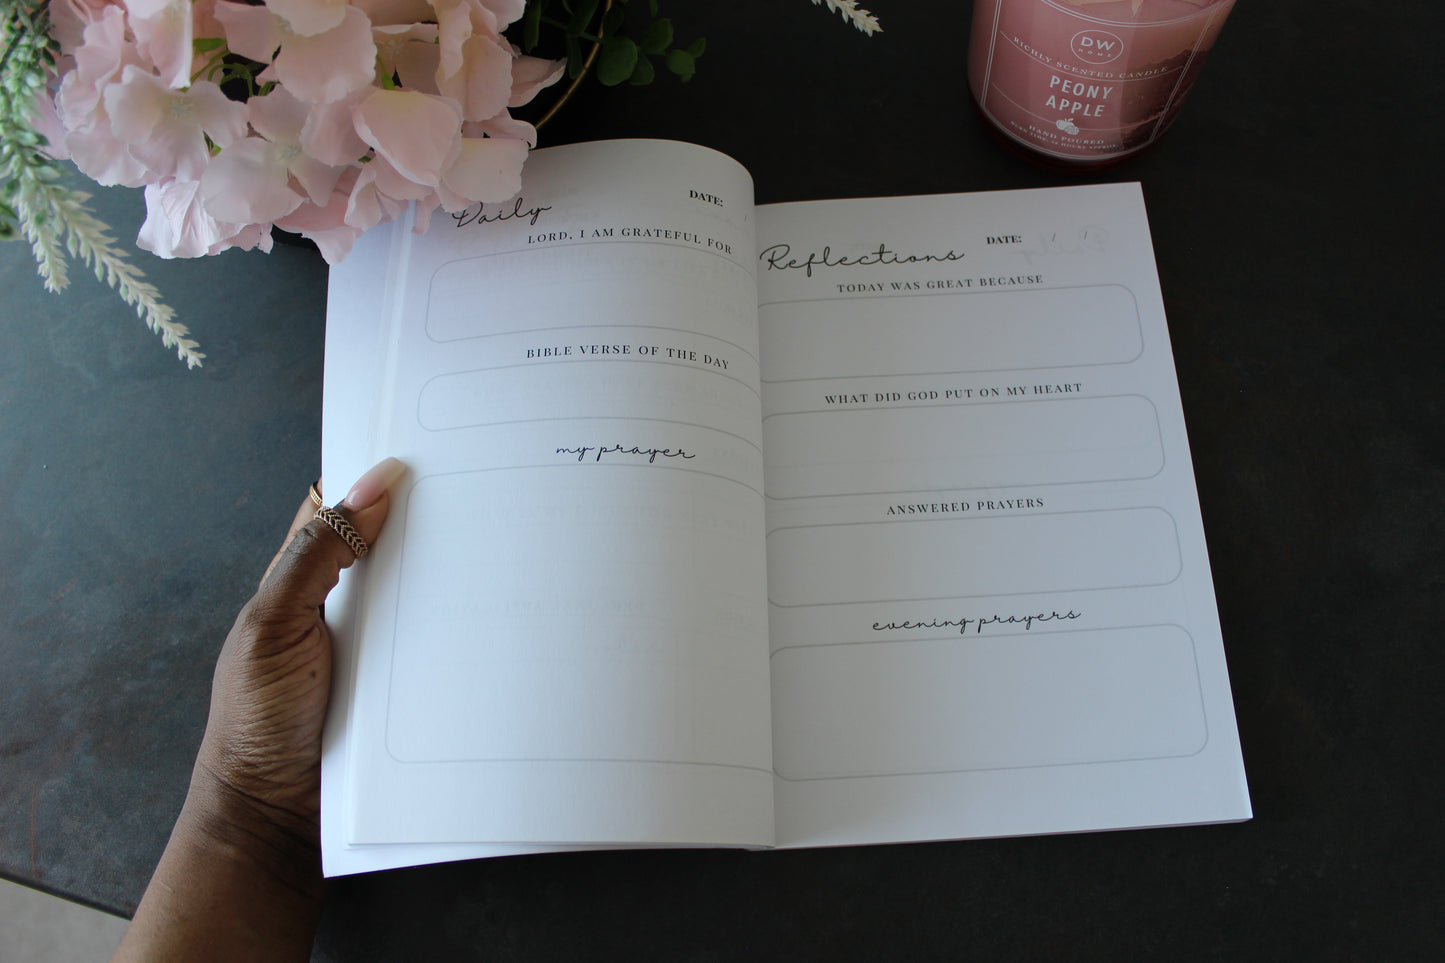 DW
HOME
RICHLY SCENTED CANDLE
PEONY
APPLE
HAND POURED
Daily
DATE: /
LORD, I AM GRATEFUL FOR
BIBLE VERSE OF THE DAY
my prayer
Reflections
DATE: / /
TODAY WAS GREAT BECAUSE
WHAT DID GOD PUT ON MY HEART
ANSWERED PRAYERS
evening prayers